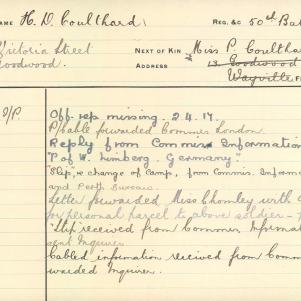 NAME H. D. Coulthard REG. &C 50th Bat
Victoria Street NEXT OF KIN Miss P. Coulthar
Goodwood. ADDRESS 13 Goodwood
Wayville
Off. rep missing. 2.4.17.
P/Cable forwarded Commrs London.
Reply from Commrs Information
"P of W. Limberg. Germany"
"Slip, re change of Camp, from Commis. Informa
and Perth Bureau.
Letter forwarded Miss Chomley with
for personal parcel to above soldier
"Slip received from Commr Informat
sent Inquirer
Cabled information received from Comm
warded Inquirer.